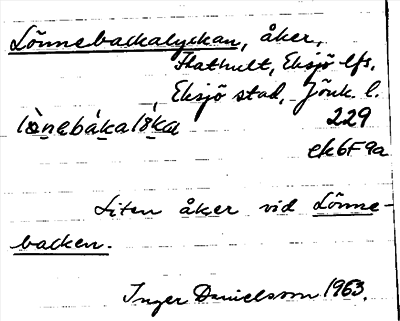 Lönnebackalyckan, åker,
Hathult, Eksjö lfs.
Eksjö stad, Jönk l.
229
ek6F9a
Liten åker vid Lönne-
backen.
Inger Danielsson 1963.